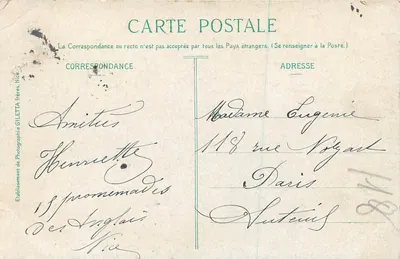 CARTE POSTALE
La Correspondance au recto n'est pas acceptée par tous les Pays étrangers. (Se renseigner à la Poste.)
CORRESPONDANCE
Amitiés
Henriette
15 promenades
des Anglais
Nice
ADRESSE
Madame Eugenie
118 rue
Paris
Auteuil
118
Etablissement de Photographie GILETTA Frères, Nice